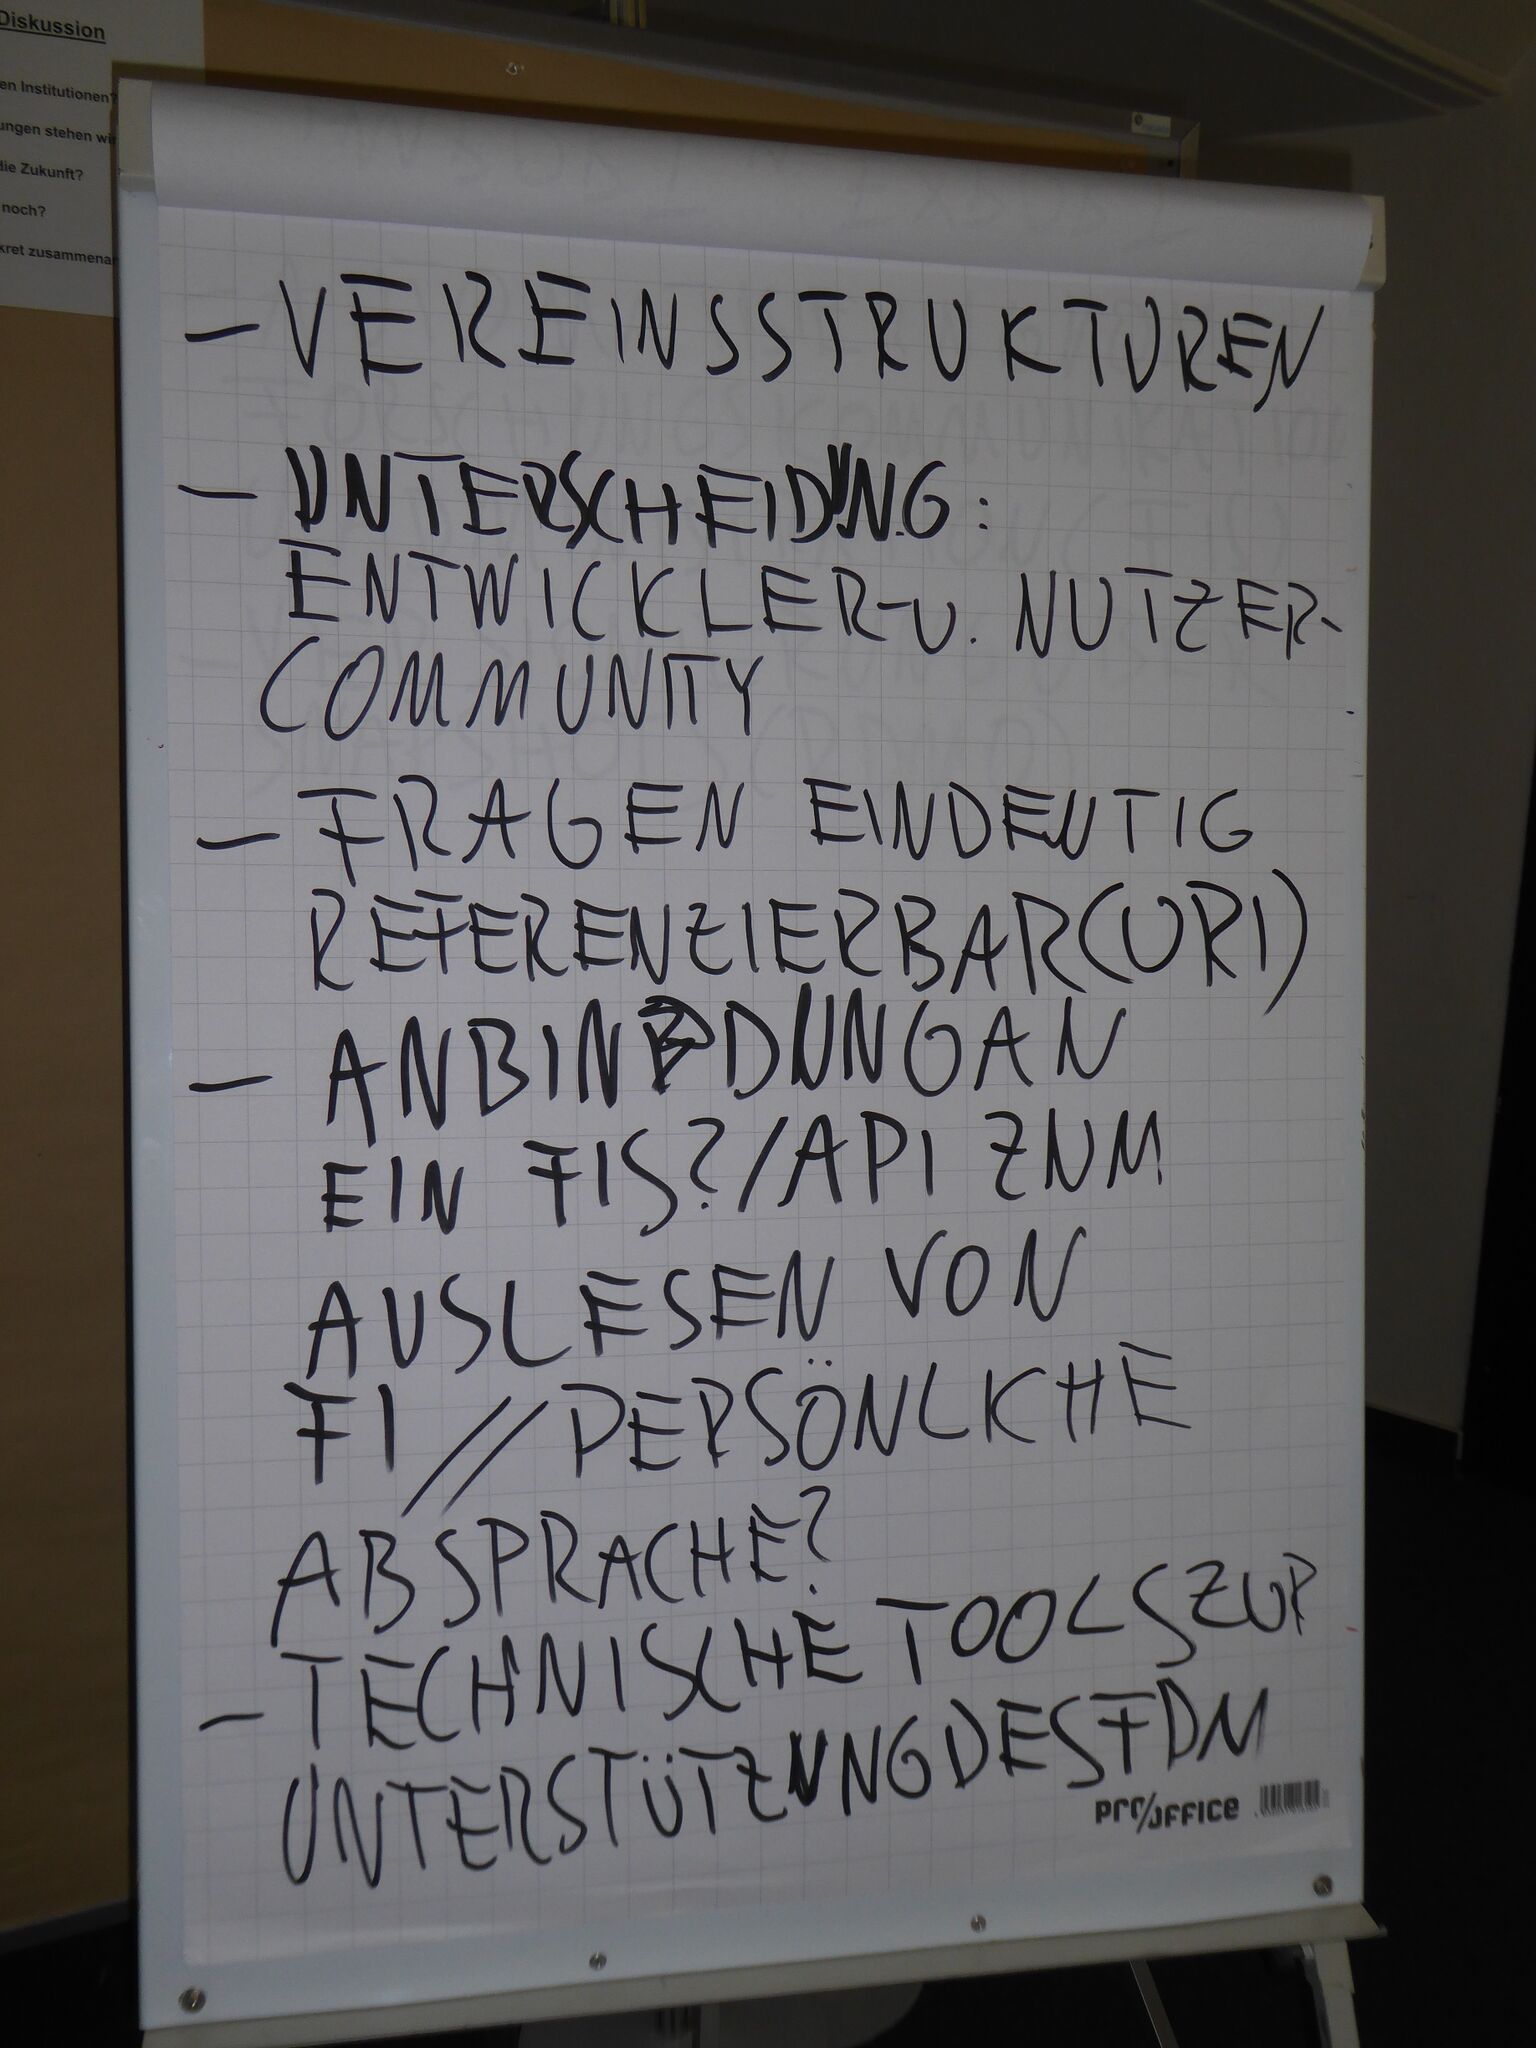 Diskussion
en Institutionen?
ungen stehen wir
die Zukunft?
noch?
kret zusammenar
- VEREINSSTRUKTUREN
- UNTERSCHEIDUNG:
ENTWICKLER-U. NUTZER-
COMMUNITY
- FRAGEN EINDEUTIG
REFERENZIERBAR(URI)
- ANBINDUNG AN
EIN FIS?/API ZUM
AUSLESEN VON
FI // PERSÖNLICHE
ABSPRACHE?
- TECHNISCHE TOOLS ZUR
UNTERSTÜTZUNG DES FDM
PRO/OFFICE